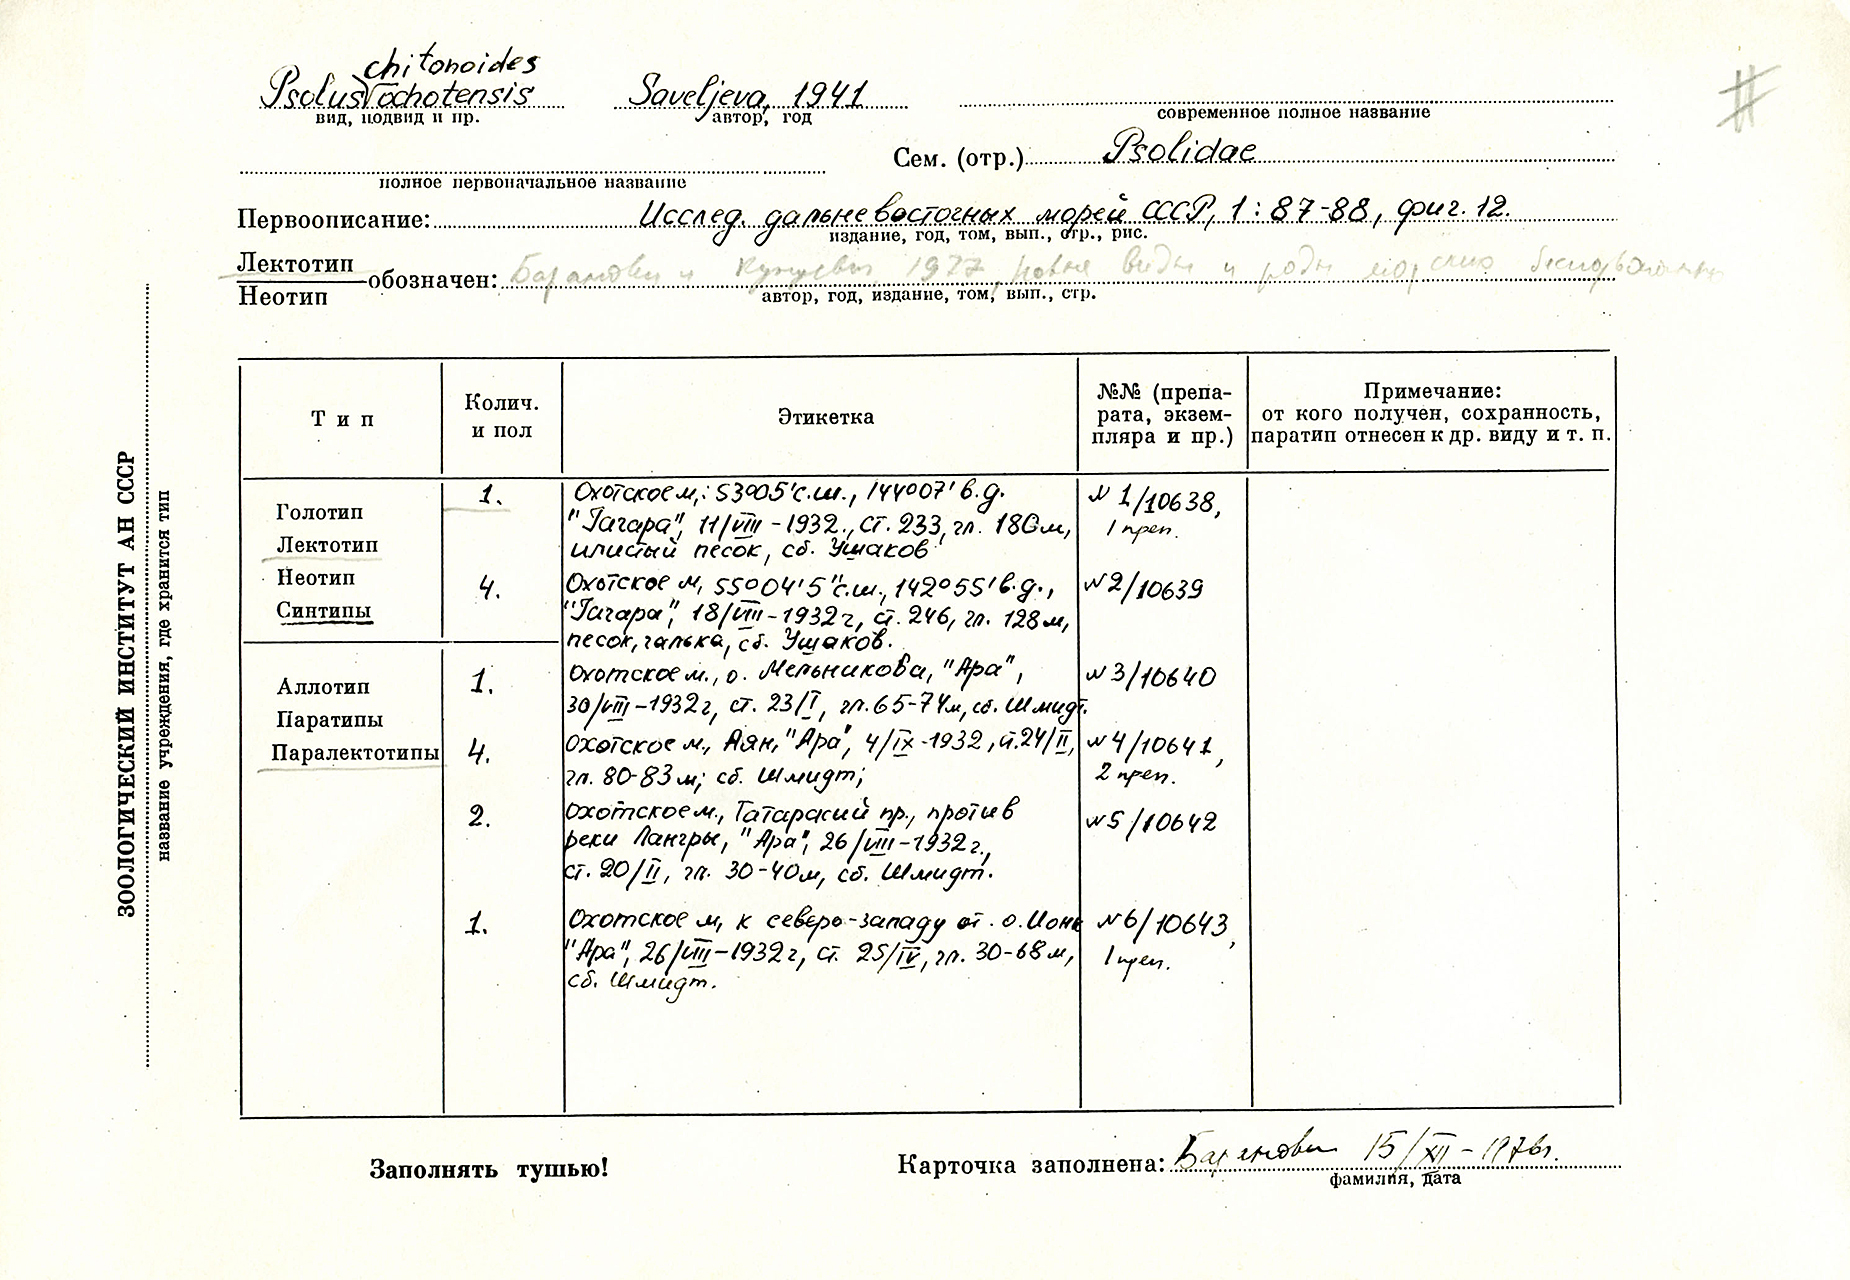 chitonoides
Psolus ochotensis Saveljeva, 1941
вид, подвид и пр. автор, год современное полное название
Сем. (отр.) Psolidae
полное первоначальное название
Первоописание: Исслед. дальневосточных морей СССР, 1: 87-88, фиг. 12.
издание, год, том, вып., стр., рис.
Лектотип
Неотип
обозначен: 1977 новые виды и роды морских беспозвоночных
автор, год, издание, том, вып., стр.
ЗООЛОГИЧЕСКИЙ ИНСТИТУТ АН СССР
название учреждения, где хранится тип
Тип
Колич.
и пол
Этикетка
№№ (препа-
рата, экзем-
пляра и пр.)
Примечание:
от кого получен, сохранность,
паратип отнесен к др. виду и т. п.
Голотип
Лектотип
Неотип
Синтипы
Аллотип
Паратипы
Паралектотипы
1. Охотское м,: 53°05' с.ш., 144°07' в.д. № 1/10638,
"Гагара", 11/VIII-1932., ст. 233, гл. 180м, 1 преп.
илистый песок, сб. Ушаков
4. Охотское м, 55°04'5" с.ш., 142°55' в.д., №2/10639
"Гагара", 18/VIII-1932г, ст. 246, гл. 128м,
песок, галька, сб. Ушаков.
1. Охотское м., о. Мельникова, "Ара", №3/10640
30/VIII-1932г, ст. 23/I, гл. 65-74м, сб. Шмидт.
4. Охотское м., Аян, "Ара", 4/IX-1932, ст. 24/II, №4/10641,
гл. 80-83м; сб. Шмидт; 2 преп.
2. Охотское м., Татарский пр., против №5/10642
реки Лангры, "Ара", 26/VIII-1932г.,
ст. 20/II, гл. 30-40м, сб. Шмидт.
1. Охотское м, к северо-западу от. о. Ионы №6/10643,
"Ара", 26/VIII-1932г, ст. 25/IV, гл. 30-68м, 1 преп.
сб. Шмидт.
Заполнять тушью!
Карточка заполнена: Баранова 15/XII-1976г.
фамилия, дата